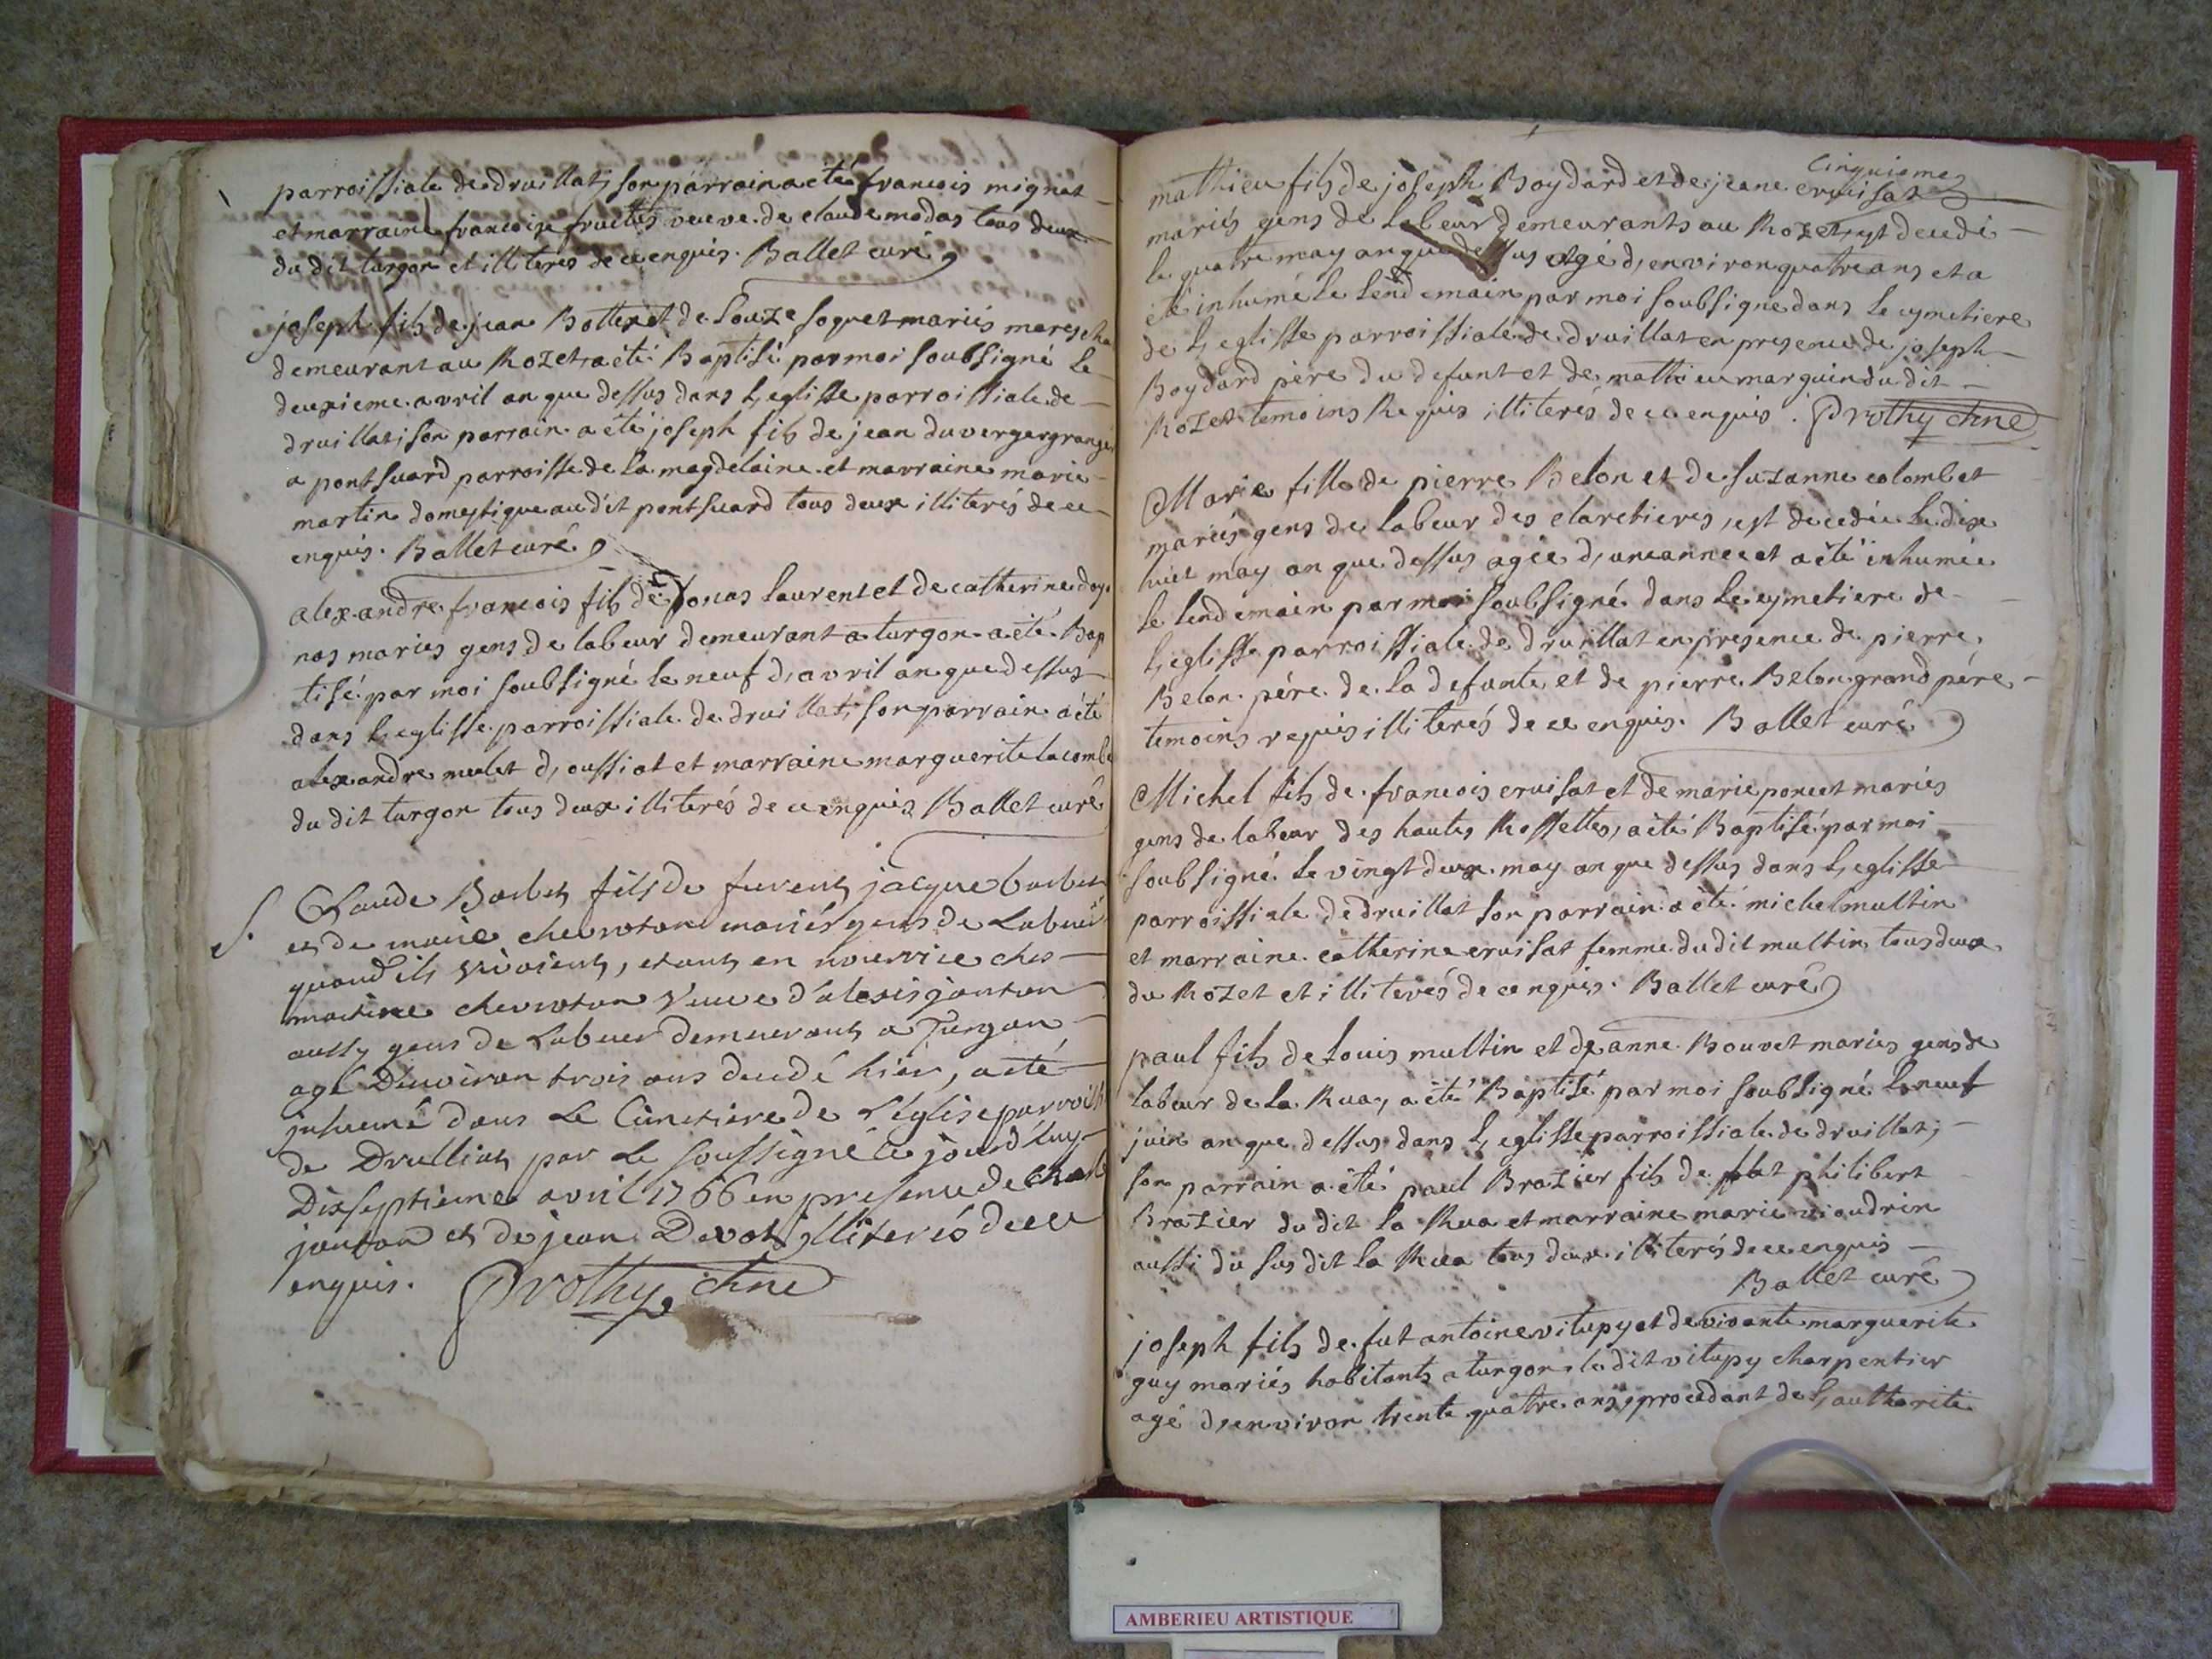 parroissiale de druillat, son parrain a eté francois mignat
et marraine francoise fruitus veuve de claude modas tous deux
du dit turgon et illiterés de ce enquis. Ballet curé
joseph fils de jean Bottex et de Louze soquet mariés maresch
demeurant au Rozet, a été Baptisé par moi soubsigné le
deuxieme avril an que dessus dans L'eglisse parroissiale de
druillat; son parrain a été joseph fils de jean du verger granger
a pont suard parroisse de la magdelaine et marraine marie
martin domestique au dit pont suard tous deux illiterés de ce
enquis. Ballet curé
alexandre francois fils de jonas laurent et de catherine day
nas mariés gens de labeur demeurant a turgon a été Bap
tisé par moi soubsigné le neuf d'avril an que dessus
dans L'eglisse parroissiale de druillat; son parrain a été
alexandre mulet d'oussiat et marraine marguerite lacombe
du dit turgon tous deux illiterés de ce enquis Ballet curé
S. Claude Barbet fils de furent jacque barbet
et de marie chevroton mariés gens de Labeur
quand ils vivoient, etant en nourrice ches
martine chevroton veuve d'alexis janton
aussy gens de Labeur demeurant a Turgon,
agé D'environ trois ans decedé hier, a eté
inhumé dans Le Cimetiere de L'église parroiss
de Drulliat par Le soussigné ce jourd'huy
Dixseptieme avril 1766 en presence de charle
janton et de jean Devot illiterés de ce
enquis. Prothy chne
Cinquieme
mathieu fils de joseph Boydard et de jeane cruisat
mariés gens de labeur demeurants au Rozet, est decedé
le quatre may an que dessus agé d'environ quatre ans et a
été inhumé le lendemain par moi soubsigné dans le cymetiere
de L'eglisse parroissiale de druillat en presence de joseph
Boydard père du defunt et de mathieu marguin du dit
Rozet temoins Requis illiterés de ce enquis. Prothy chne
Marie fille de pierre Belon et de suzanne colombet
mariés gens de labeur des claretieres, est decedée le dix
huit may an que dessus agée d'une annee et a été inhumée
le lendemain par moi soubsigné dans le cymetiere de
L'eglisse parroissiale de druillat en presence de pierre
Belon pére de la defunte et de pierre Belon grand pére
temoins requis illiterés de ce enquis. Ballet curé
Michel fils de francois cruisat et de marie poncet mariés
gens de labeur des hautes Rossettes, a été Baptisé par moi
soubsigné le vingt deux may an que dessus dans L'eglisse
parroissiale de druillat son parrain a été michel multin
et marraine catherine cruisat femme du dit multin tous deux
du Rozet et illiterés de ce enquis. Ballet curé
paul fils de Louis multin et de anne Bouvet mariés gens de
labeur de la Rua, a été Baptisé par moi soubsigné le neuf
juin an que dessus dans L'eglisse parroissiale de druillat;
son parrain a été paul Brazier fils de fut philibert
Brazier du dit la Rua et marraine marie vioudrin
aussi du sus dit la Rua tous deux illiterés de ce enquis
Ballet curé
joseph fils de fut antoine vitupy et de vivante marguerite
guy mariés habitants a turgon, le dit vitupy charpentier
agé d'environ trente quatre ans, procedant de L'authorité
AMBERIEU ARTISTIQUE